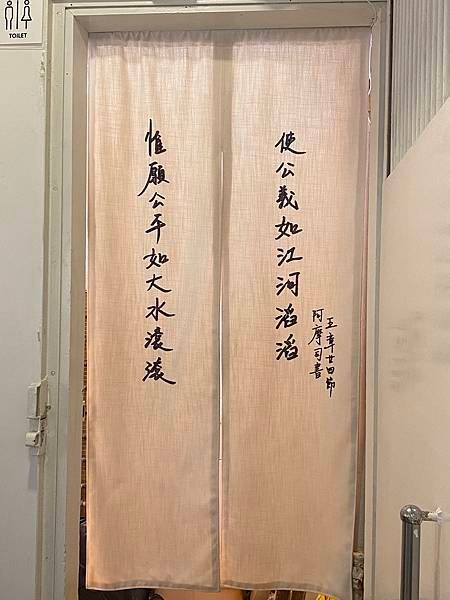 TOILET
惟願公平如大水滾滾
使公義如江河滔滔
阿摩司書
五章廿四節